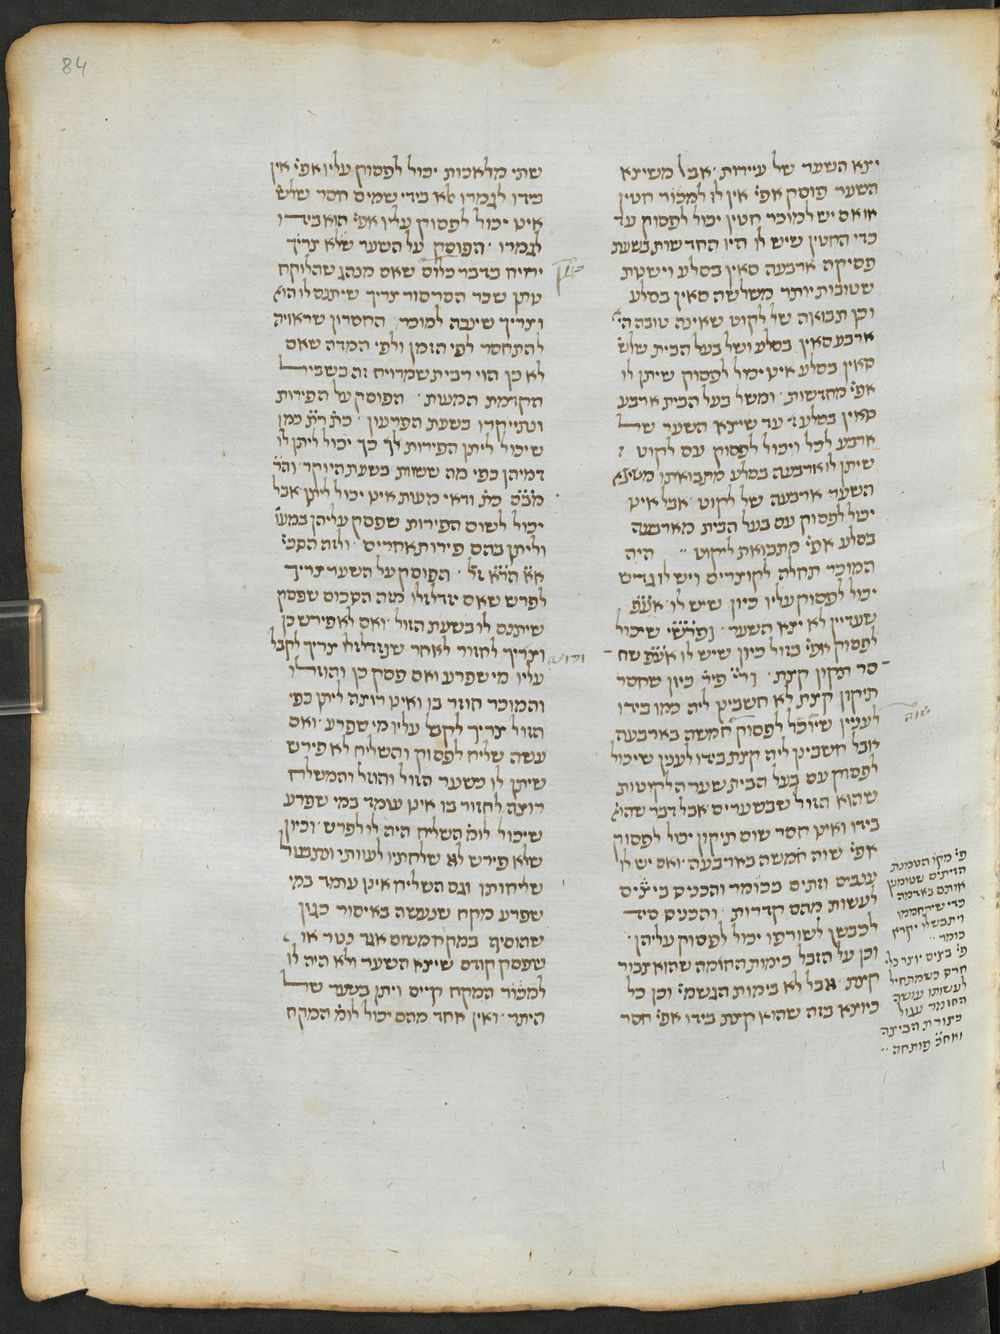 84
יצא השער של עיירות ׳ אבל משיצא
השער פוסק אפי׳ אין לו למכור חטין
או אם יש למוכר חטין יכול לפסוק עד
כדי החטין שיש לו היו החדשות בשעת
פסיקה ארבעה סאין בסלע וישנות
שטובות יותר משלשה סאין בסלע
וכן תבואה של לקוט שאינה טובה הי׳
ארבע סאין בסלע ושל בעל הבית שלש
סאין בסלע אינו יכול לפסוק שיתן לו
אפי׳ מחדשות ׳ ומשל בעל הבית ארבע
סאין בסלע עד שיצא השער של
ארבע לכל ויכול לפסוק עם לקוט
שיתן לו ארבעה בסלע מתבואתו משיצא
השער ארבעה של לקוט ׳ אבל אינו
יכול לפסוק עם בעל הבית מארבעה
בסלע אפי׳ מתבואת לקוט ׳׳ היה
המוכר תחלה לקוצרים ויש לו גדיש
יכול לפסוק עליו כיון שיש לו אע״פ
שעדיין לא יצא השער ׳ ופרש״י שיכול
לפסוק אפי׳ בזול כיון שיש לו אע״פ שח
סר תקון קצת ׳ ור״י פי׳ כיון שחסר
תיקון קצת לא חשבינן ליה כמו בידו
לעניין שיוכל לפסוק חמשה בארבעה
אבל חשבינן ליה קצת בידו לענין שיכול
לפסוק עם בעל הבית שער הלקוטות
שהוא הזול שבשערים אבל דבר שהוא
בידו ואינו חסר שום תיקון יכול לפסוק
אפי׳ שוה חמשה בארבעה ׳ ואם יש לו
ענבים וזתים בכומר והכניס ביצים
לעשות מהם קדרות ׳ והכניס סיד
לכבשן לשורפו יכול לפסוק עליהן ׳
וכן על הזבל בימות החומה שהוא צבור
קצת ׳ אבל לא בימות הגשמי׳ וכן כל
כיוצא בזה שהוא קצת בידו אפי׳ חסר
שוה
פי׳ מקו׳ הטמנת
הזיתים שטומנן
אותם באדמה
כדי שיתחממו
ויתבשלו יקרא
כומר ׳׳
פי׳ ביצים יוצר כלי
חרס כשמתחיל
לעשותו עושה
החומר עגול
כצורת הביצה
ואח״כ פותחה ׳׳
שתי מלאכות יכול לפסוק עליו אפי׳ אין
בידו לגמרו לא בידי שמים חסר שלש
אינו יכול לפסוק עליו אפי׳ הוא בידו
לגמרו ׳ הפוסק על השער שלא צריך
יוזיח בדבר כלום שאם מנהג שהלוקח
נותן שכר הסרסור צריך שיתנם לו הוא
וצריך שינכה למוכר החסרון שראויה
להתחסר לפי הזמן ולפי המדה שאם
לא כן הוי רבית שמרויח זה בשביל
הקדמת המעות ׳ הפוסק על הפירות
ונתייקרו בשעת הפרעון ׳ כת׳ ר״ת כמו
שיכול ליתן הפירות לך כך יכול ליתן לו
דמיהן כפי מה ששוות בשעת היוקר ׳ והר׳
כת׳ ודאי מעות אינו יכול ליתן אבל
יכול לשום הפירות שפסק עליהן במעו׳
וליתן בהם פירות אחרים ׳ ולזה הסכי׳
א״א הרא״ש ז״ל ׳ הפוסק על השער צריך
לפרש שאם יוזלזלו מזה הסכום שפסק
שיתנם לו בשעת הזול ׳ ואם לא פירש כן
וצריך לחזור לאחר שנזדלזלו צריך לקבל
עליו מי שפרע ואם פסק כן והוזלו
והמוכר חוזר בו ואינו רוצה ליתן כפי
הזול צריך לקבל עליו מי שפרע ׳ ואם
עשה שליח לפסוק והשליח לא פירש
שיתן לו כשער הזול והוזל והמשלח
רוצה לחזור בו אינו עומד במי שפרע
שיכול לומ׳ השליח היה לו לפרש ׳ וכיון
שלא פירש לא שלחתיו לעוותי ונתבטל
שליחותו וגם השליח אינו עומד במי
שפרע מקח שנעשה באיסור כגון
שהוסיף במקח משום אגר נטר או
שפסק קודם שיצא השער ולא היה לו
למכור המקח קיים ויתן בשער של
היתר ׳ ואין אחד מהם יכול לומ׳ המקח